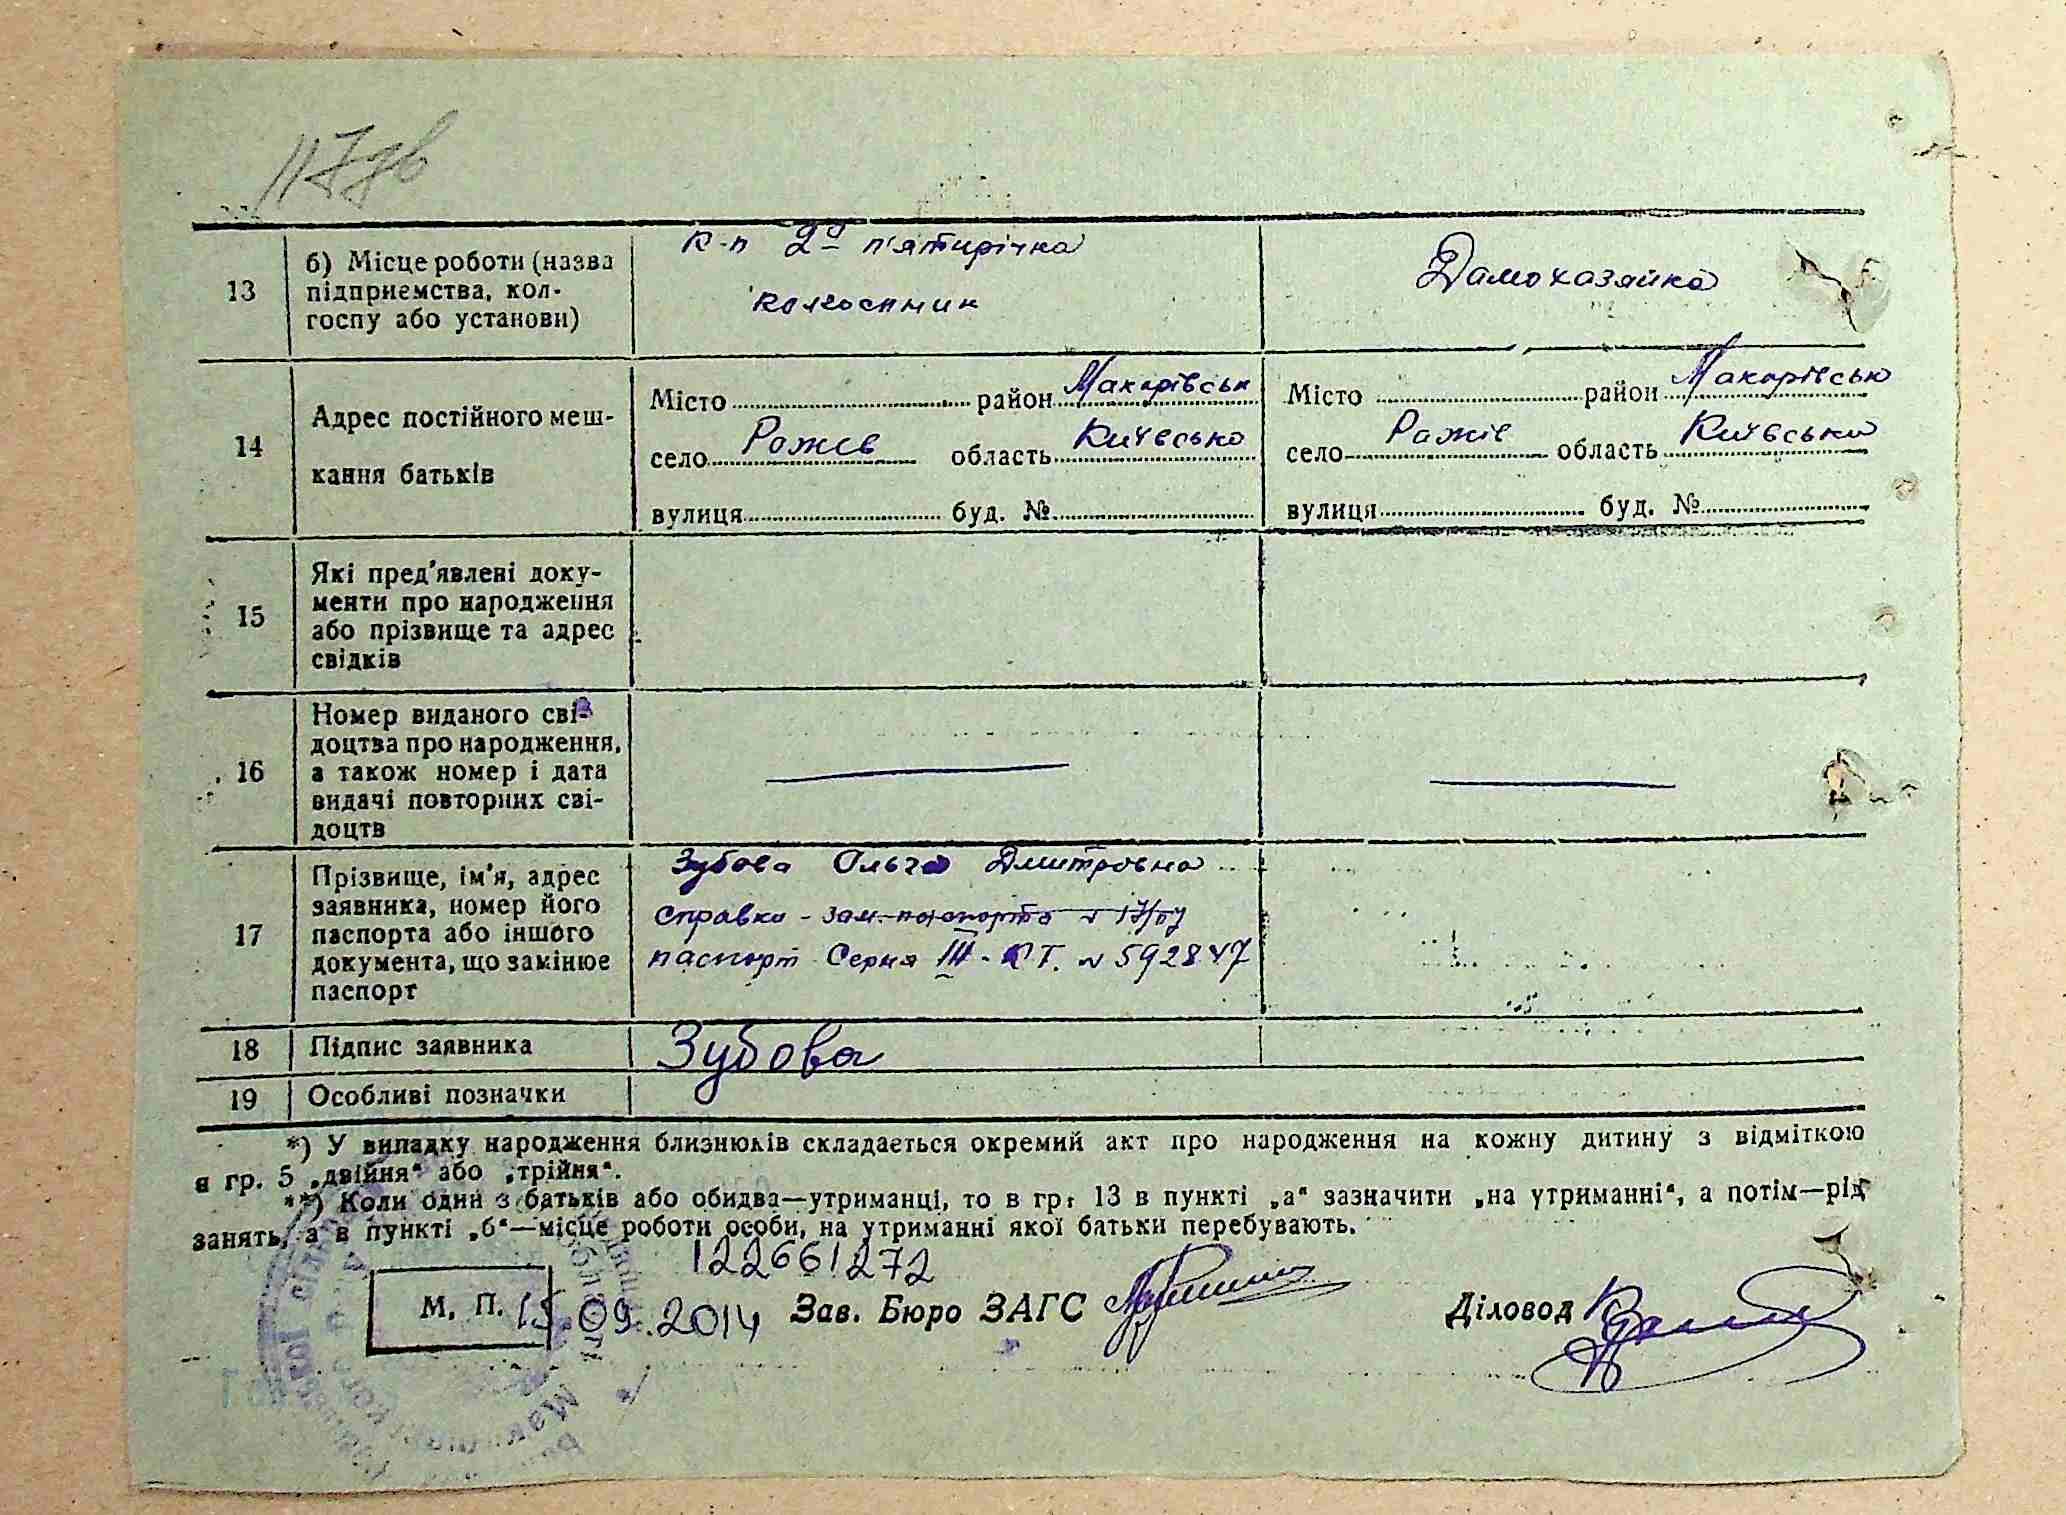 117дв
13
б) Місце роботи (назва
підприємства, кол-
госпу або установи)
к-п 2а п'ятирічка
колхосник
Дамохазяйка
14
Адрес постійного меш-
кання батьків
Місто район Макарівськ
село Рожев область Київсько
вулиця буд. №
Місто район Макарівсько
село Рожів область Київсько
вулиця буд. №
15
Які пред'явлені доку-
менти про народження
або прізвище та адрес
свідків
16
Номер виданого сві-
доцтва про народження,
а також номер і дата
видачі повторних сві-
доцтв
17
Прізвище, ім'я, адрес
заявника, номер його
паспорта або іншого
документа, що замінює
паспорт
Зубова Ольга Дмитровна
справка - зам. паспорта
паспорт Серия III - КТ. № 592847
18
Підпис заявника
Зубова
19
Особливі позначки
*) У випадку народження близнюків складається окремий акт про народження на кожну дитину з відміткою
в гр. 5 „двійня" або „трійня".
**) Коли один з батьків або обидва—утриманці, то в гр. 13 в пункті „а" зазначити „на утриманні", а потім—рід
занять, а в пункті „б"—місце роботи особи, на утриманні якої батьки перебувають.
122661272
М. П. 15.09.2014 Зав. Бюро ЗАГС
Діловод